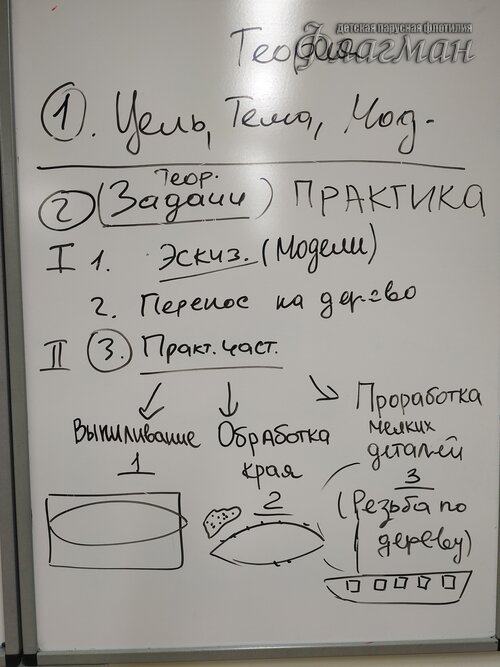 детская парусная флотилия
Флагман
Теория
1. Цель, Тема, Мод.
Теор.
2 (Задачи) ПРАКТИКА
I 1. Эскиз. (Модели)
2. Перенос на дерево
II 3. Практ. част.
Выпиливание
1
Обработка
края
2
Проработка
мелких
деталей
3
(Резьба по
дереву)